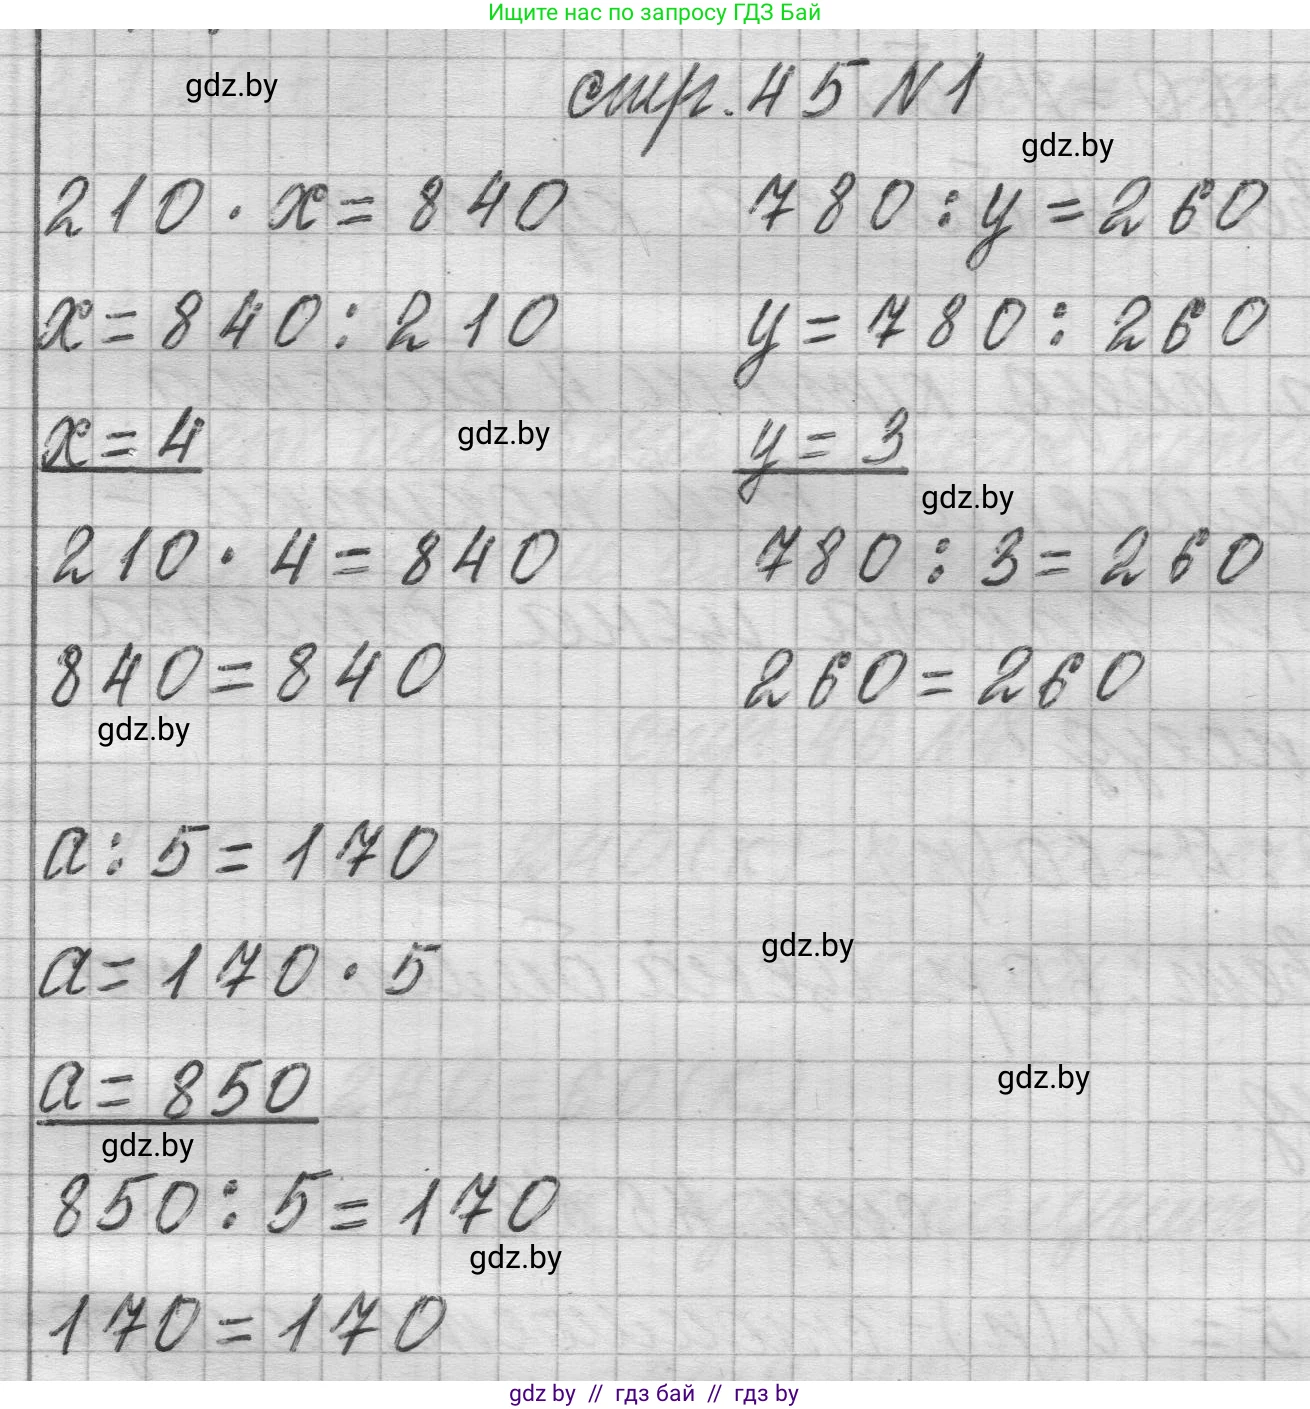 Ищите нас по запросу ГДЗ Бай
gdz.by
стр. 45 № 1
gdz.by
210 · x = 840
780 : y = 260
x = 840 : 210
y = 780 : 260
x = 4
gdz.by
y = 3
gdz.by
210 · 4 = 840
780 : 3 = 260
840 = 840
260 = 260
gdz.by
a : 5 = 170
a = 170 · 5
gdz.by
a = 850
gdz.by
gdz.by
850 : 5 = 170
gdz.by
170 = 170
gdz by // гдз бай // гдз by